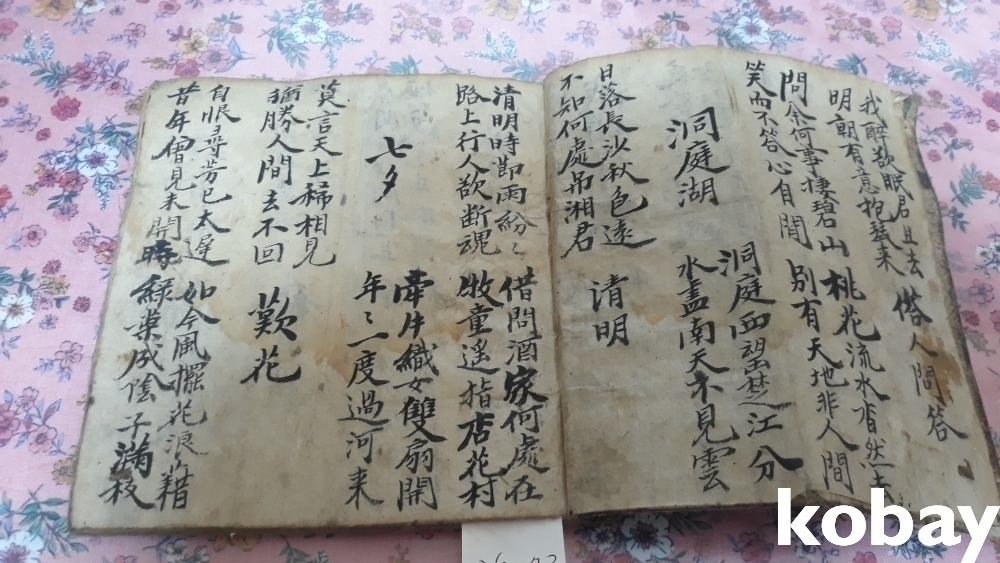 我醉欲眠君且去
明朝有意抱琴来
荅人問答
問余何事棲碧山
笑而不答心自閒
桃花流水杳然去
別有天地非人間
洞庭湖
洞庭西望楚江分
水盡南天不見雲
日落長沙秋色遠
不知何處吊湘君
清明
清明時節雨紛〻
路上行人欲断魂
借問酒家何處在
牧童遥指店花村
七夕
牽牛織女雙扇開
年〻一度過河来
莫言天上稀相見
猶勝人間去不回
歎花
自恨尋芳已太遅
昔年曾見未開時
如今風擺花浪藉
緑葉成陰子滿枝
kobay